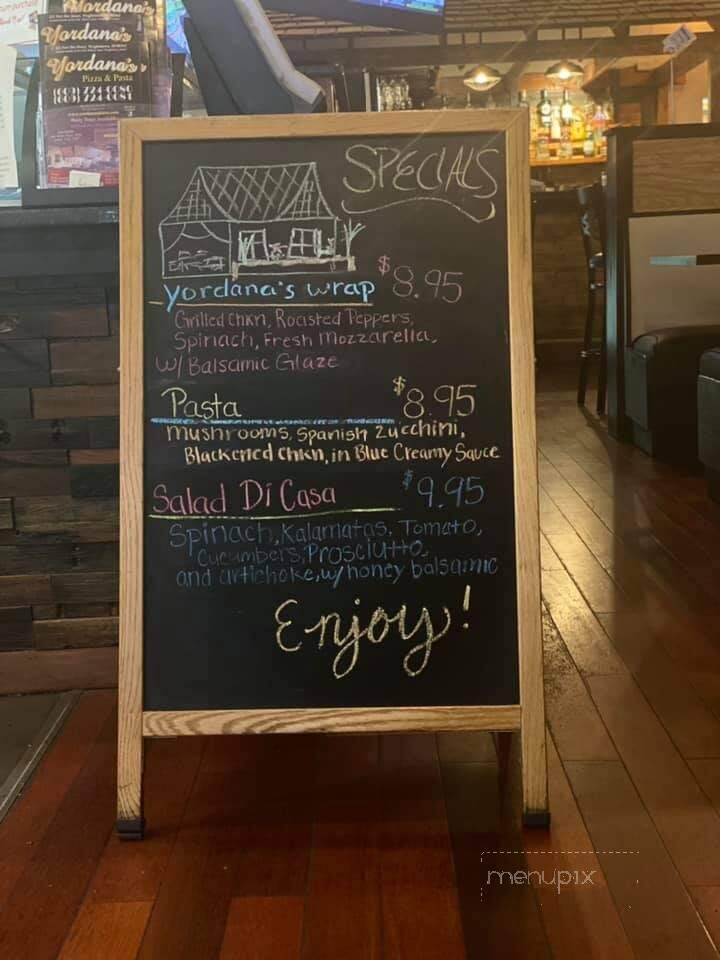 Yordana's
Yordana's
Yordana's
Pizza & Pasta
SPECIALS
Yordana's wrap $8.95
Grilled Chkn, Roasted Peppers,
Spinach, Fresh Mozzarella,
w/ Balsamic Glaze
Pasta $8.95
mushrooms, Spanish Zucchini,
Blackened Chkn, in Blue Creamy Sauce
Salad Di Casa $9.95
Spinach, Kalamatas, Tomato,
Cucumbers, Prosciutto,
and artichoke, w/ honey balsamic
Enjoy!
menupix